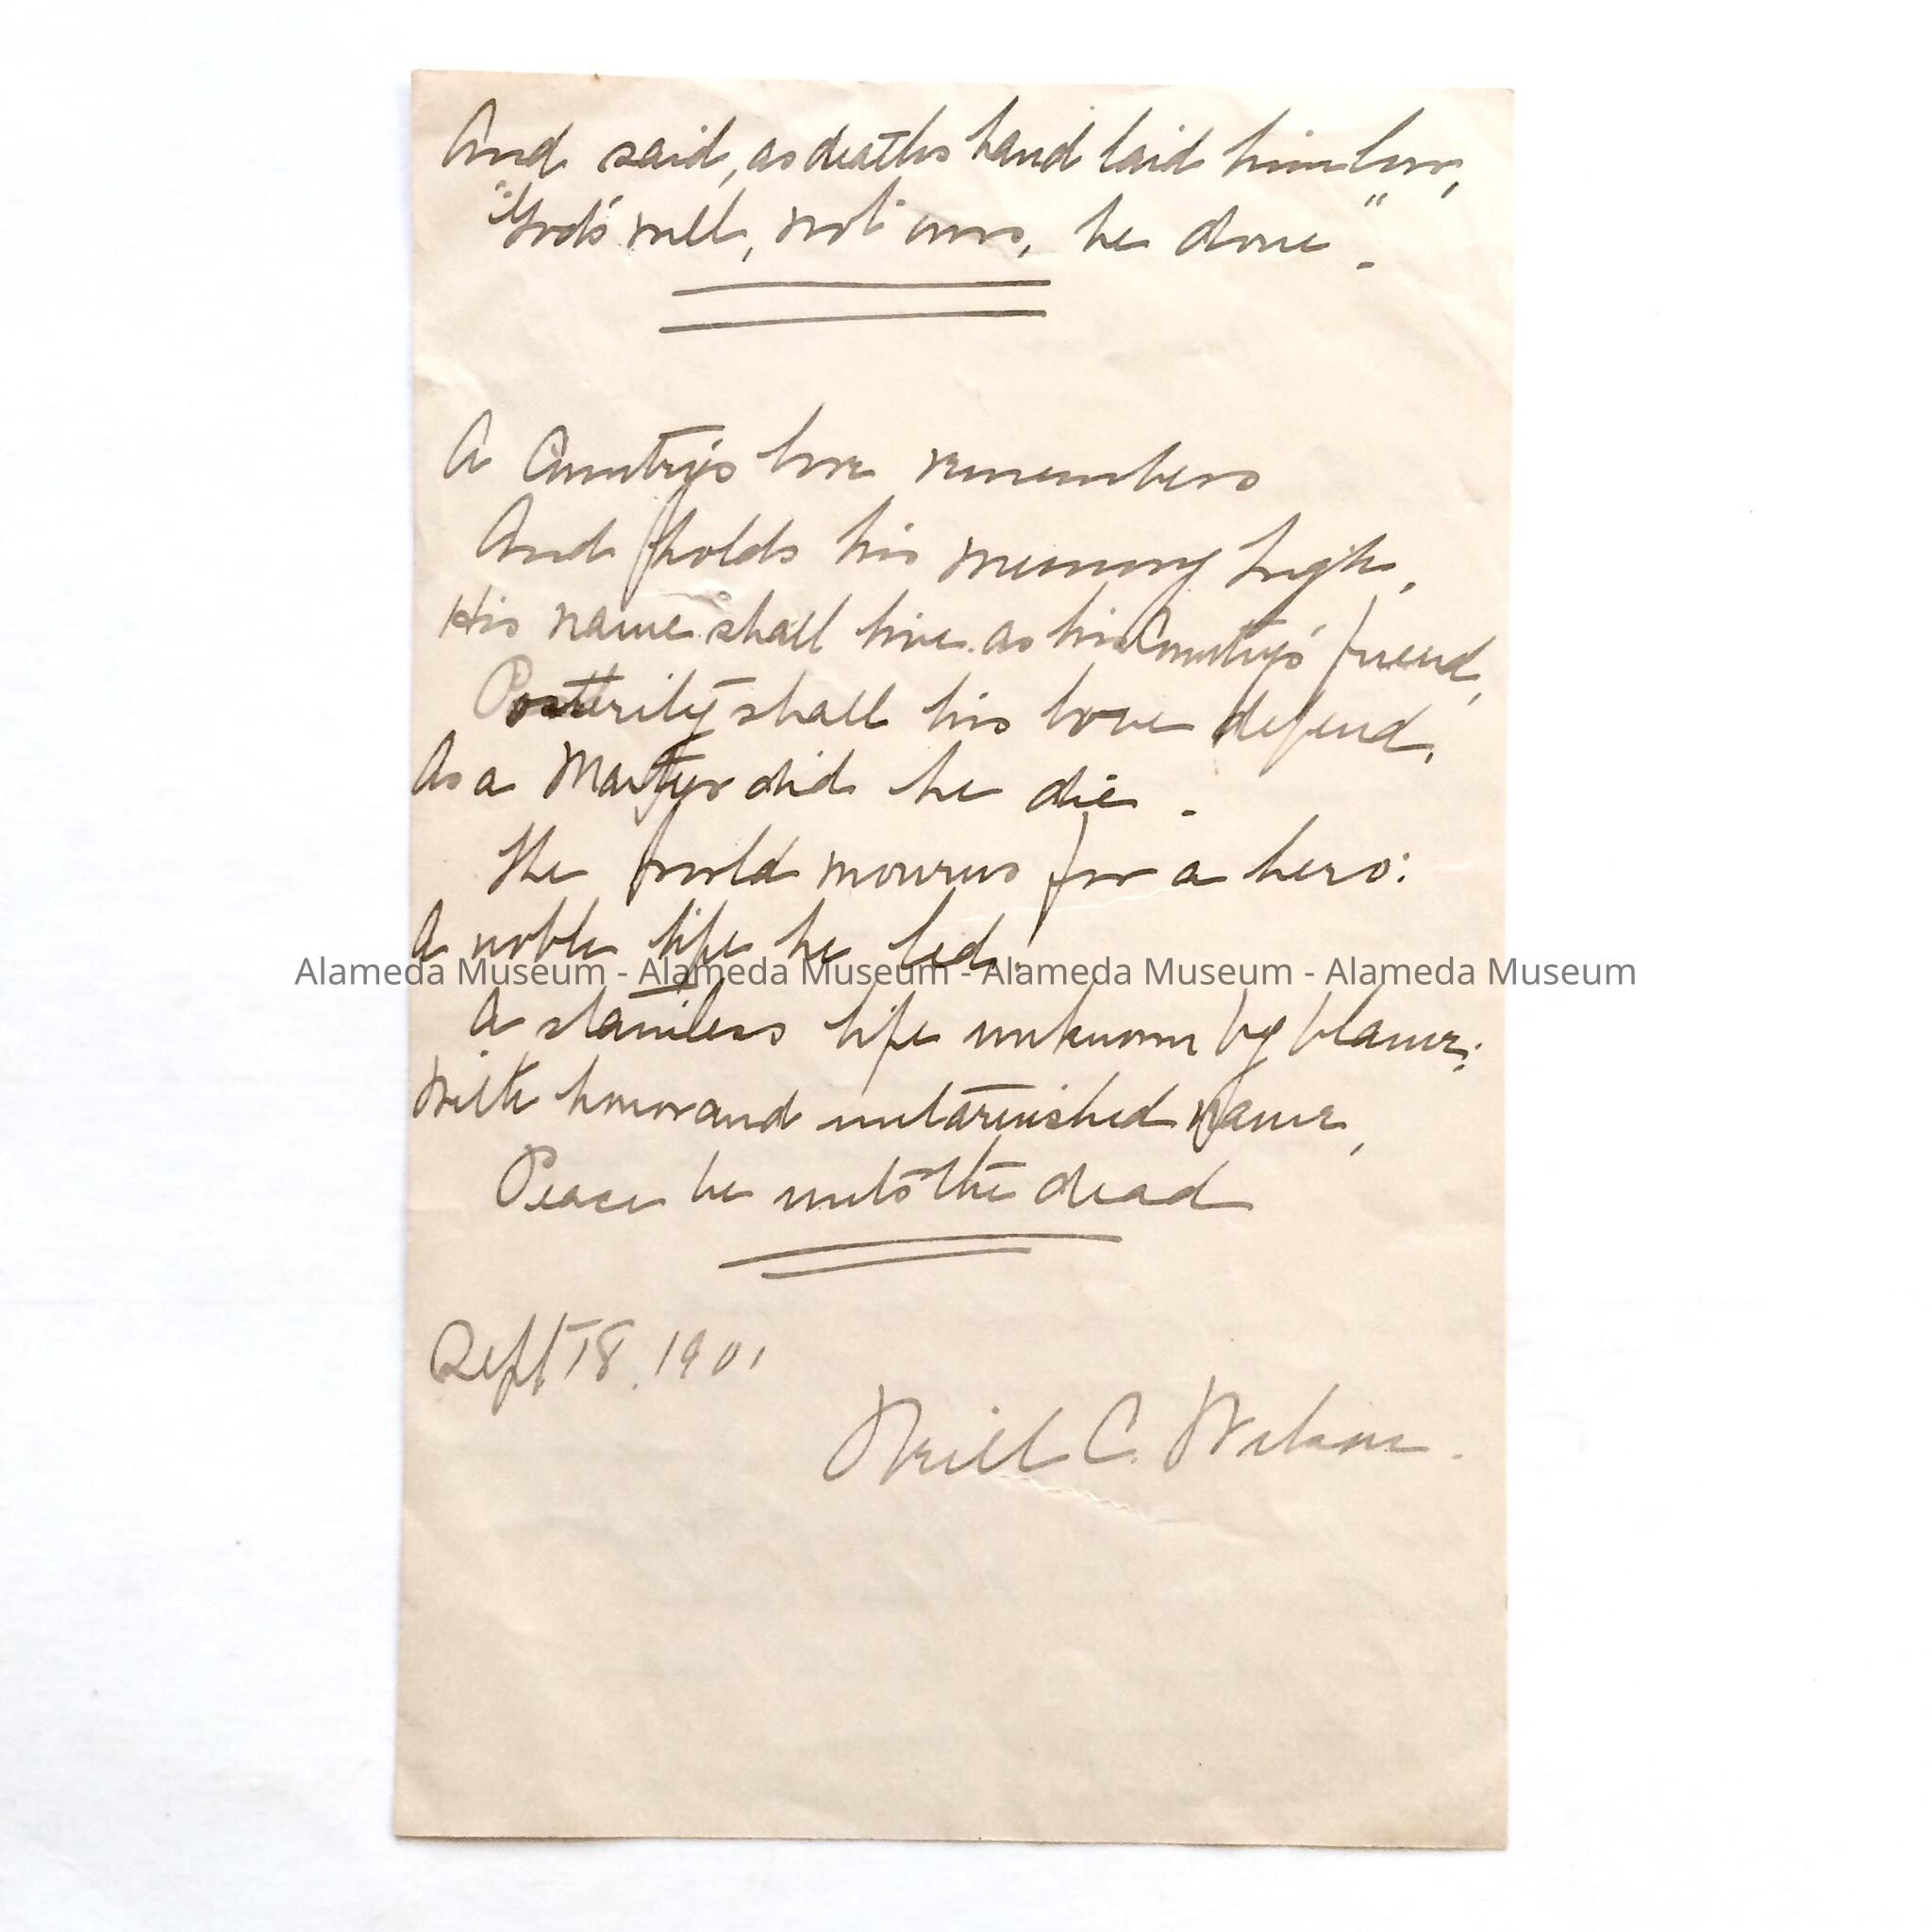 And said, as deaths hand laid him low,
"God's will, not ours, be done".
A Country's love remembers
And holds his memory high,
His name shall live as his Country's friend,
Posterity shall his love defend,
As a Martyr did he die.
The world mourns for a hero:
A noble life he led:
Alameda Museum - Alameda Museum - Alameda Museum - Alameda Museum
A stainless life unknown by blame;
With honor and untarnished name,
Peace be unto the dead
Sept 18. 1901
Neill C. Wilson.